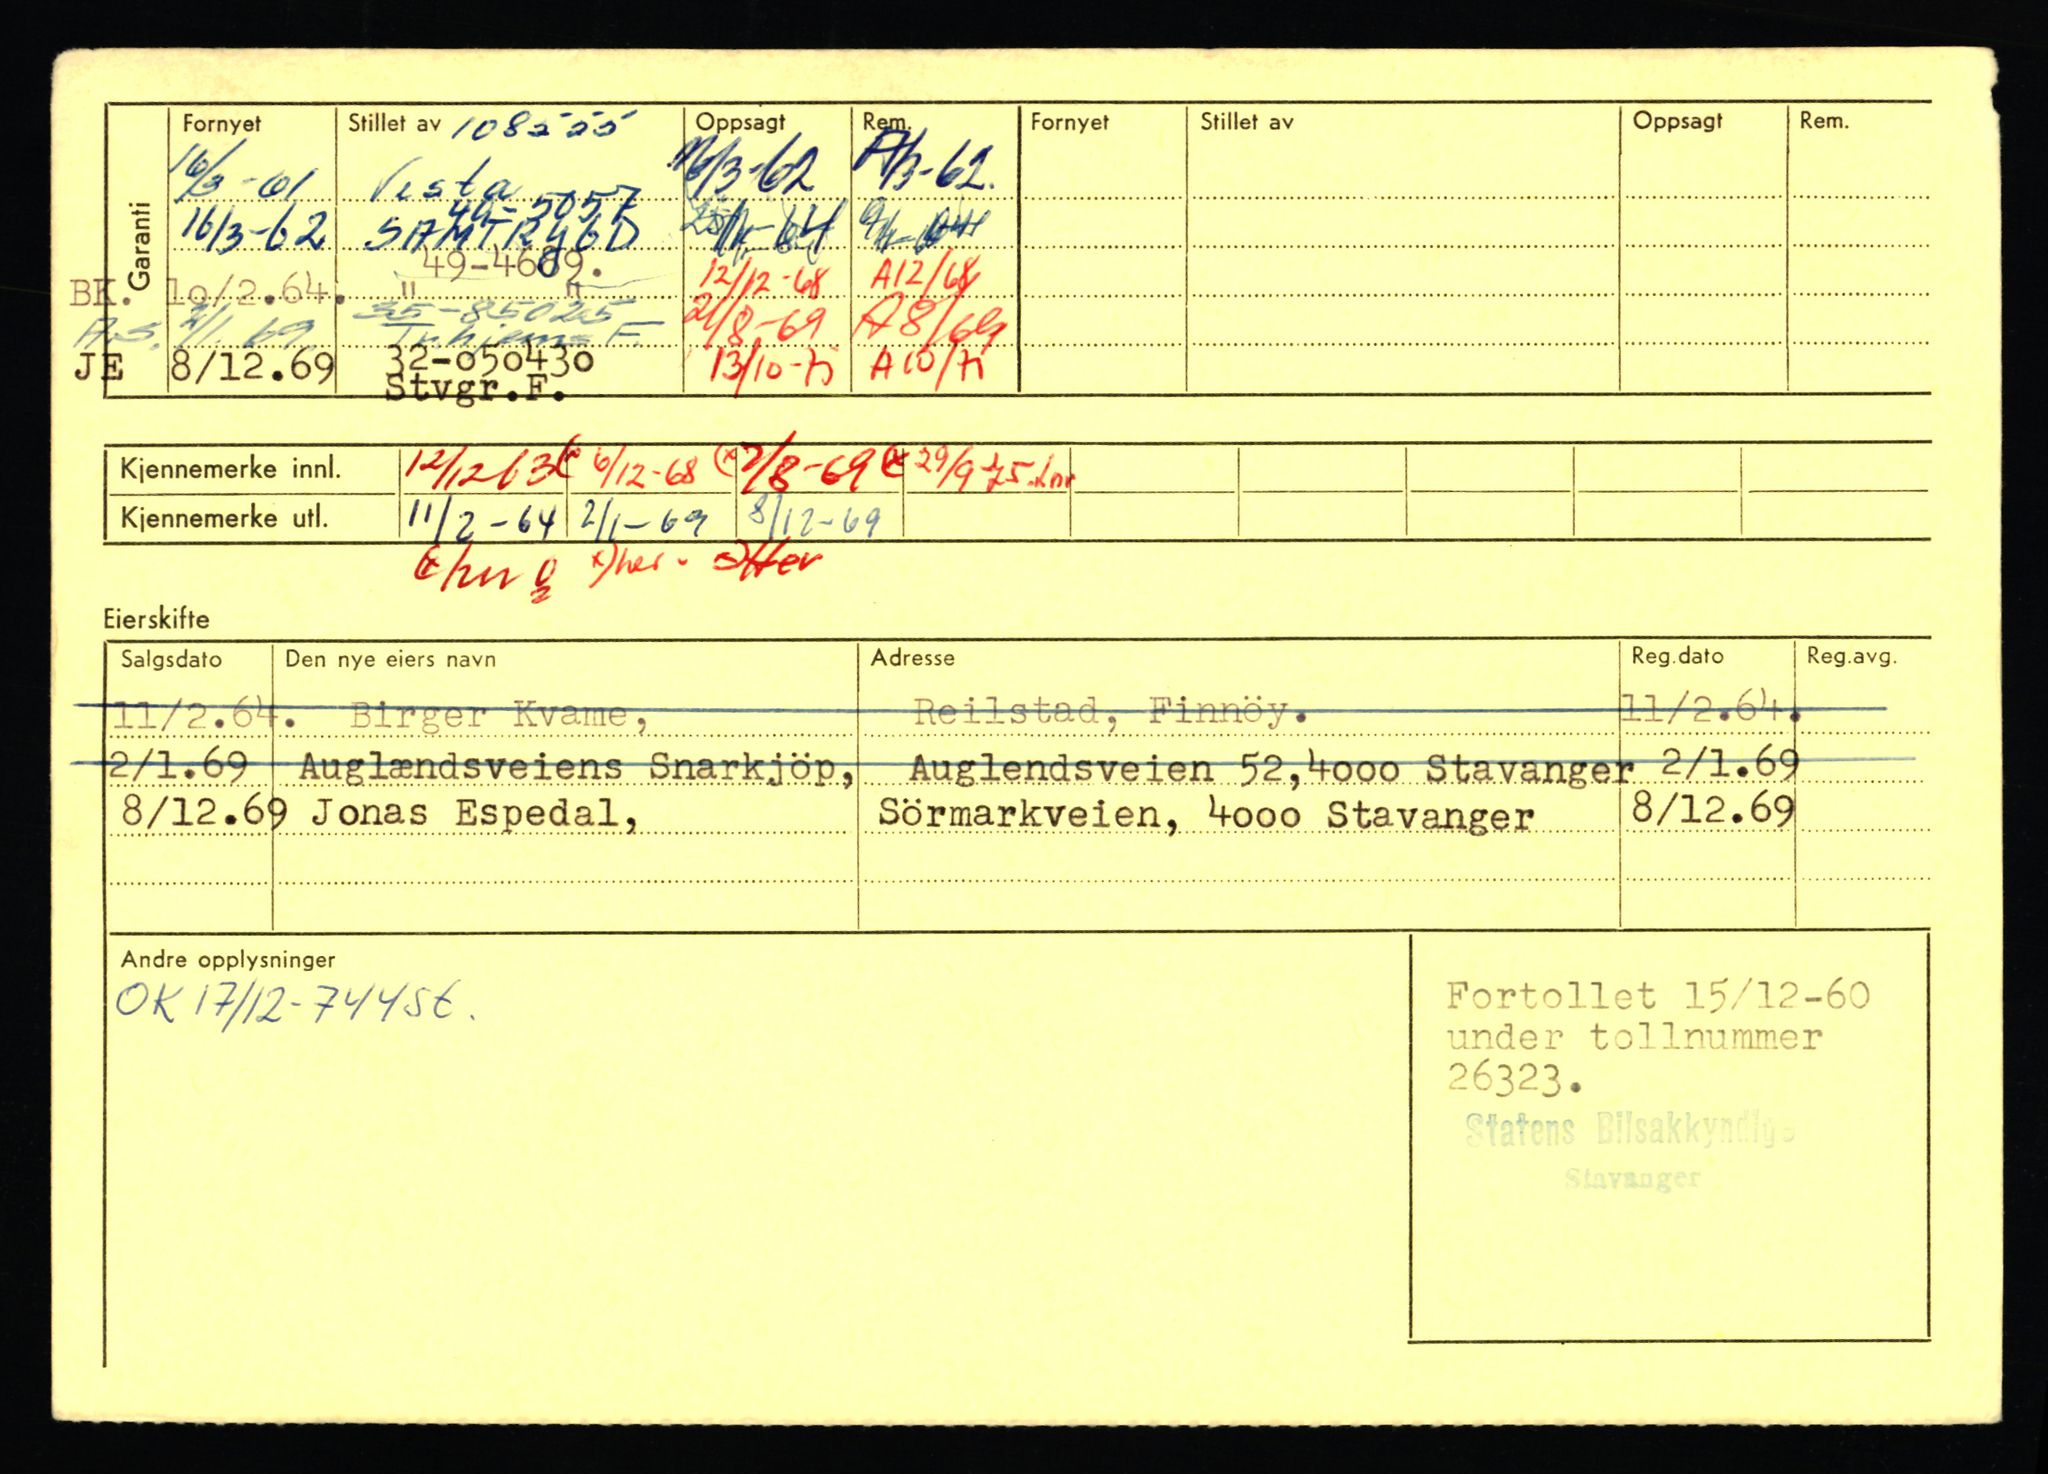 Garanti
Fornyet Stillet av 108555 Oppsagt Rem. Fornyet Stillet av Oppsagt Rem.
16/3-61 Vesta 16/3-62 A/3-62.
49-5057
16/3-62 SAMTRYGD
49-4689.
BK. 10/2.64. " " 12/12-68 A12/68
35-85025
A.S. 2/1.69 2/8-69 A8/69
JE 8/12.69 32-050430 13/10-71 A10/71
Stvgr.F.
Kjennemerke innl. 12/12-63 (x 6/12-68 (x 7/8-69 (x 29/9-75
Kjennemerke utl. 11/2-64 2/1-69 8/12-69
x) her
Eierskifte
Salgsdato Den nye eiers navn Adresse Reg.dato Reg.avg.
11/2.64. Birger Kvame, Reilstad, Finnöy. 11/2.64.
2/1.69 Auglændsveiens Snarkjöp, Auglendsveien 52,4000 Stavanger 2/1.69
8/12.69 Jonas Espedal, Sörmarkveien, 4000 Stavanger 8/12.69
Andre opplysninger
OK 17/12-74
Fortollet 15/12-60
under tollnummer
26323.
Statens Bilsakkyndige
Stavanger